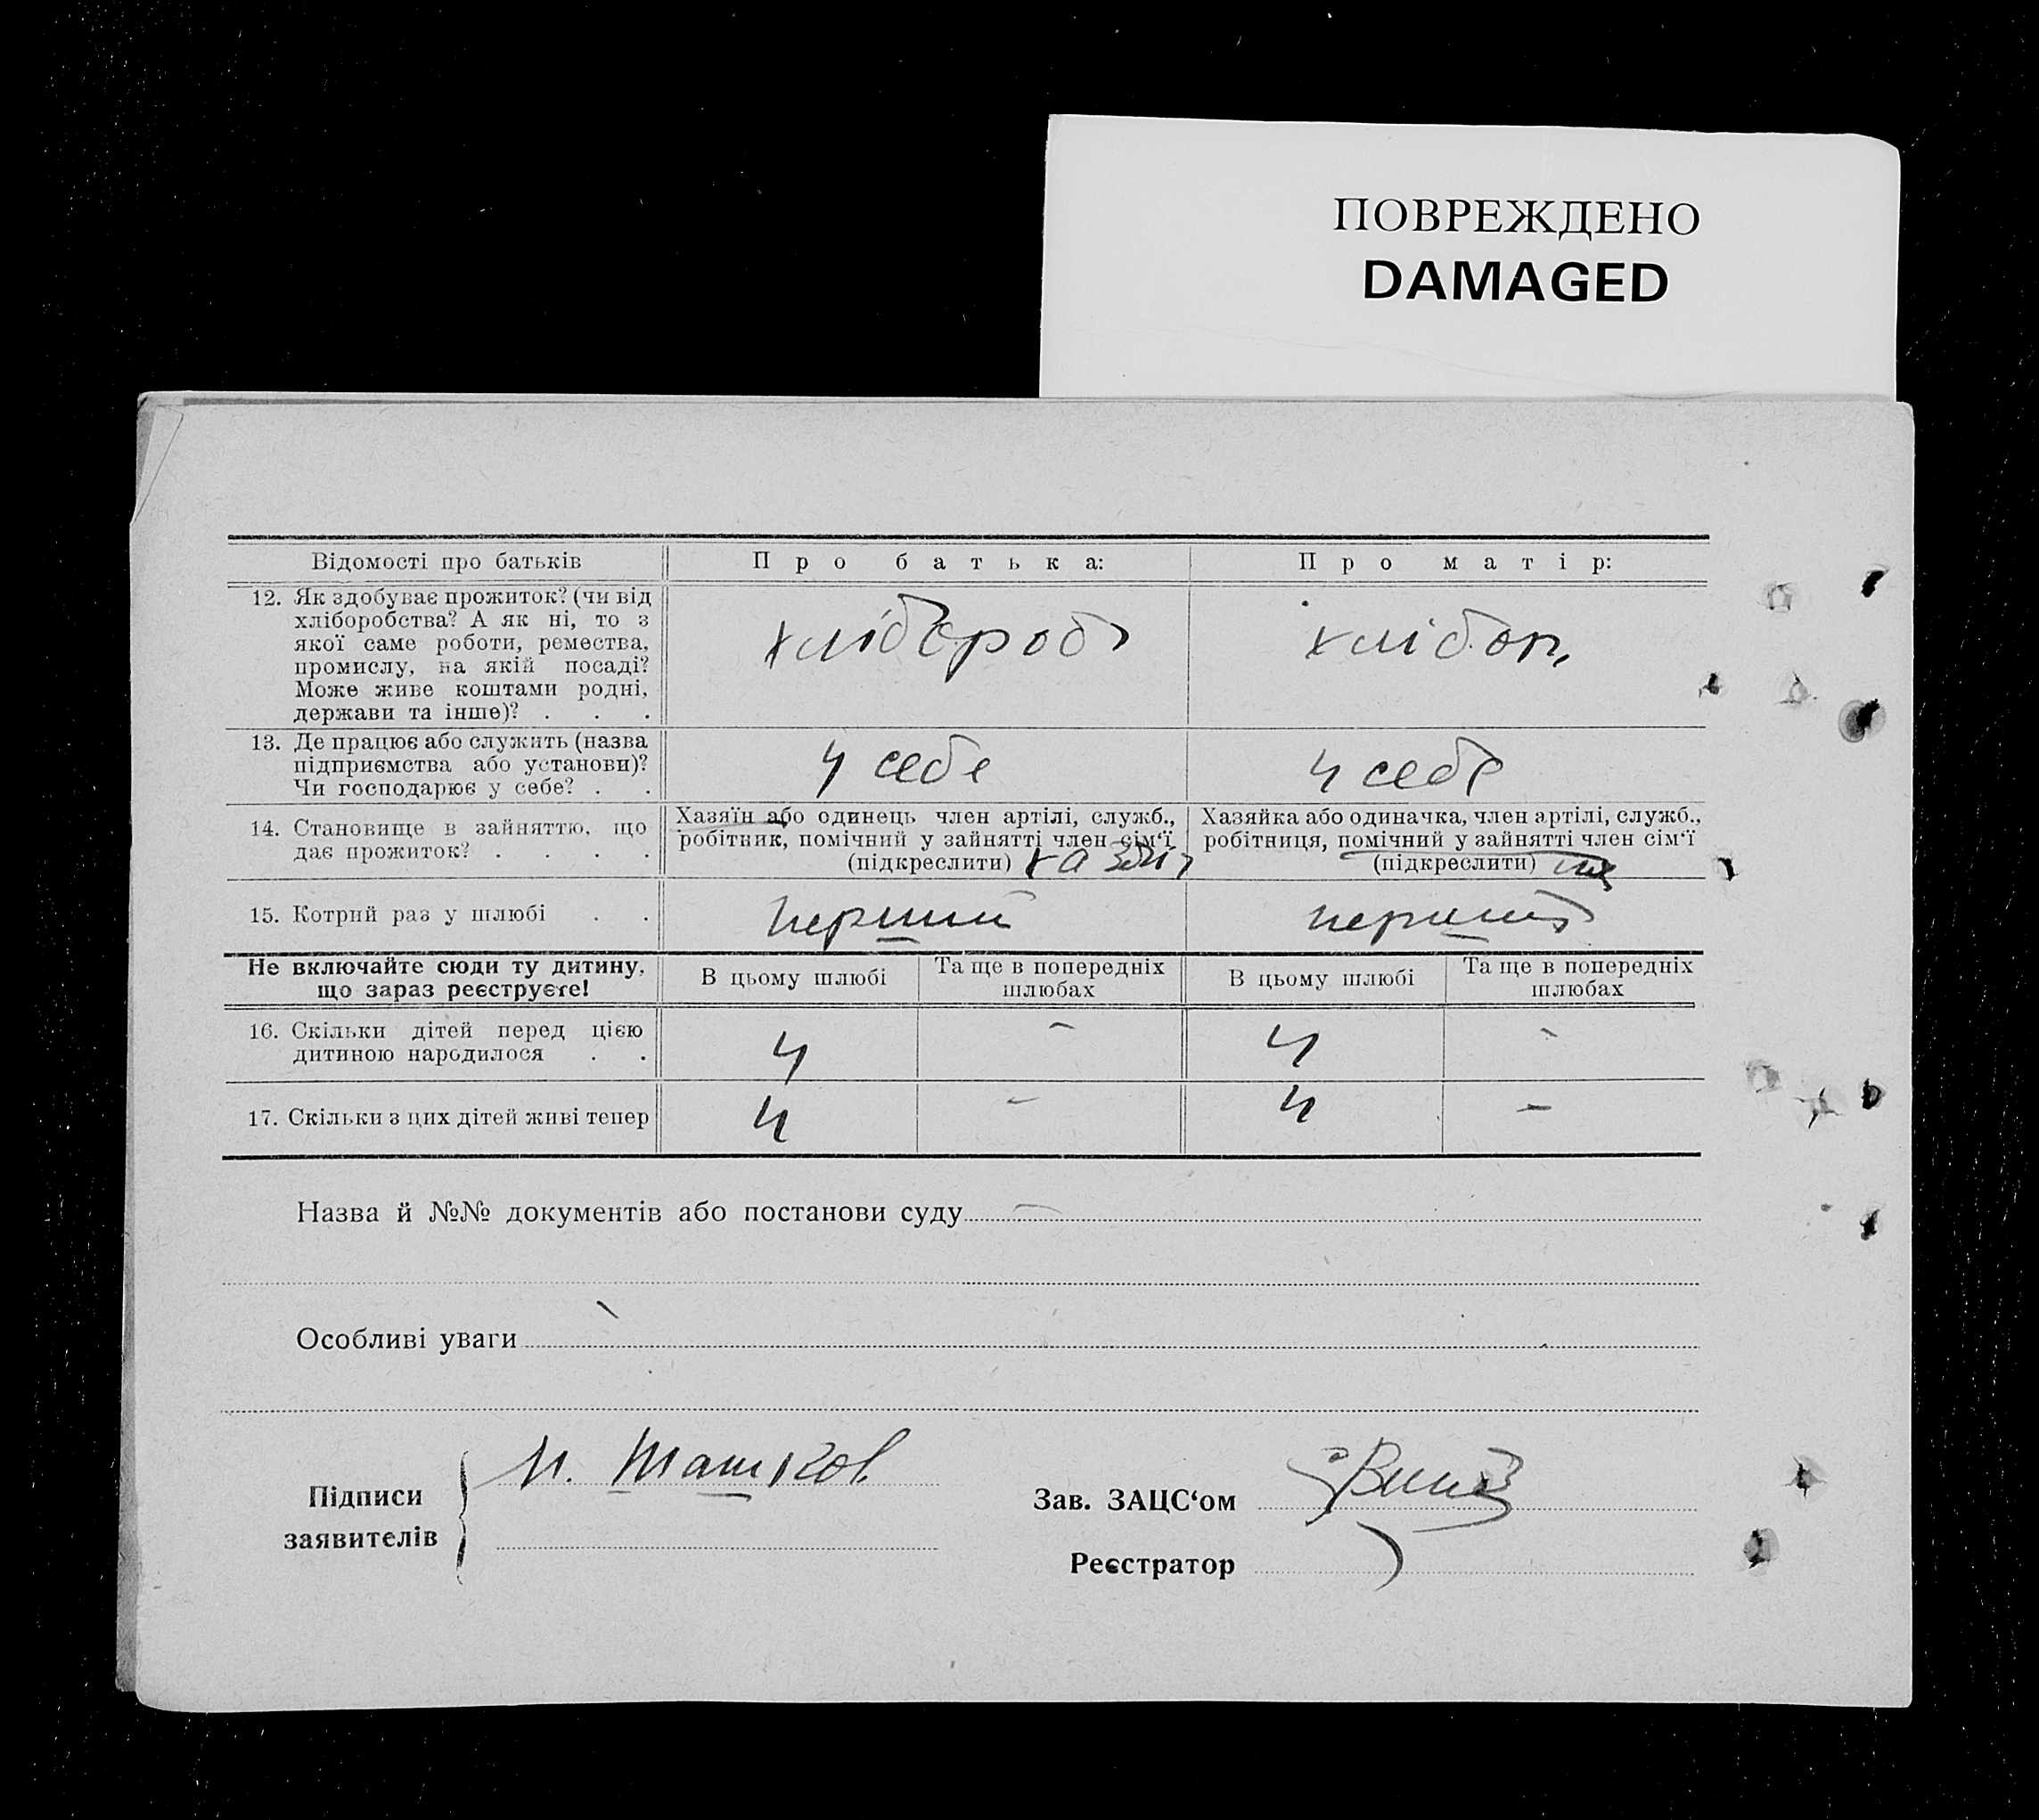 ПОВРЕЖДЕНО
DAMAGED
Відомості про батьків
Про батька:
Про матір:
12. Як здобуває прожиток? (чи від
хліборобства? А як ні, то з
якої саме роботи, ремества,
промислу, на якій посаді?
Може живе коштами родні,
держави та інше)? . . .
хлібороб
хлібор,
13. Де працює або служить (назва
підприємства або установи)?
Чи господарює у себе? . .
у себе
у себе
14. Становище в зайняттю, що
дає прожиток? . . . .
Хазяїн або одинець член артілі, служб.,
робітник, помічний у зайнятті член сім‘ї
(підкреслити)
Хазяйка або одиначка, член артілі, служб.,
робітниця, помічний у зайнятті член сім‘ї
(підкреслити)
15. Котрий раз у шлюбі . .
перший
перший
Не включайте сюди ту дитину,
що зараз реєструєте!
В цьому шлюбі
Та ще в попередніх
шлюбах
В цьому шлюбі
Та ще в попередніх
шлюбах
16. Скільки дітей перед цією
дитиною народилося . .
4
-
4
-
17. Скільки з цих дітей живі тепер
4
-
4
-
Назва й №№ документів або постанови суду -
Особливі уваги
Підписи
заявителів
Зав. ЗАЦС‘ом
Реєстратор